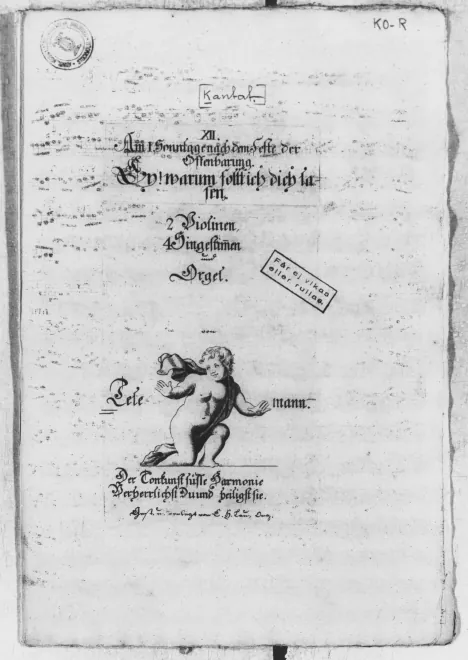 KO-R
Kantat.
XII.
Am 1 Sonntage nach dem Feste der
Offenbarung.
Ey! warum sollt ich dich la-
sen.
2 Violinen.
4 Singestimen
und
Orgel.
Får ej vikas
eller rullas.
von
Tele- mann.
Der Tonkunst süsse Harmonie
Verherrlichst Du und heiligst sie.